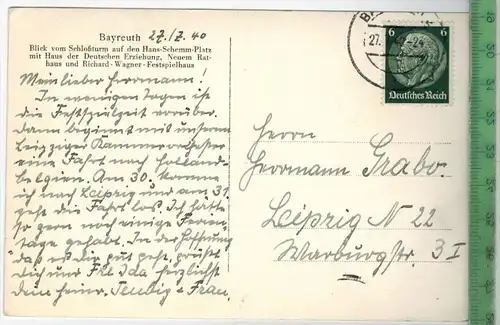 Bayreuth 27./7. 40
Blick vom Schloßturm auf den Hans-Schemm-Platz
mit Haus der Deutschen Erziehung, Neuem Rat-
haus und Richard-Wagner-Festspielhaus
Mein lieber Herrmann!
In wenigen Tagen ist
die Festspielzeit vorüber.
Dann beginnt mit unserem
Leipziger Kammerorchester
eine Fahrt nach Holland-
Belgien. Am 30. komme
ich nach Leipzig und am 31.
geht die Fahrt los. Ich hätte
so gern noch einige Ferien-
tage gehabt. In der Hoffnung
daß es Dir gut geht, grüßt
Dich und Frl Ida herzlichst
Dein Heinr. u. Frau.
27.
6 6
Deutsches Reich
Herrn
Herrmann Grabo.
Leipzig N 22
Warburgstr. 3 I